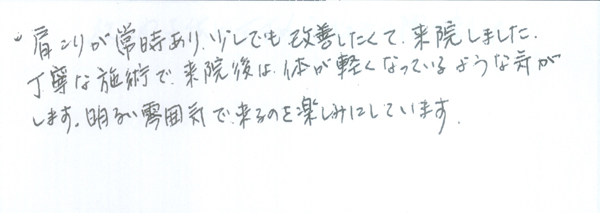 肩こりが常時あり、少しでも改善したくて、来院しました。
丁寧な施術で、来院後は、体が軽くなっているような気が
します。明るい雰囲気で、来るのを楽しみにしています。